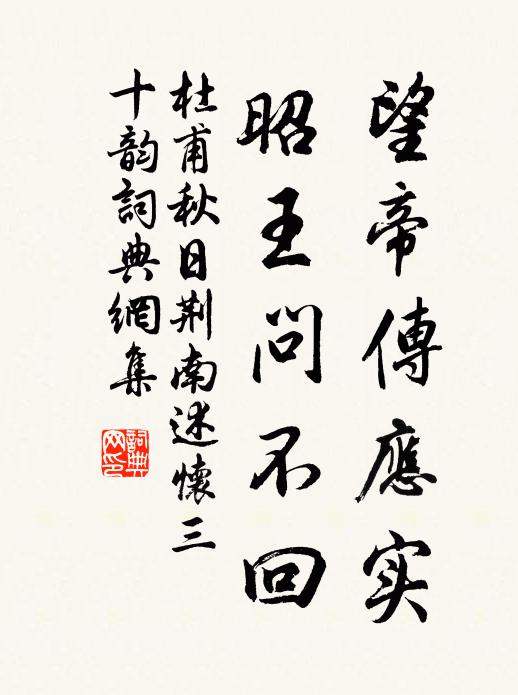 望帝傳應实
昭王問不回
杜甫秋日荆南述懷三
十韵詞典網集
詞典
网印